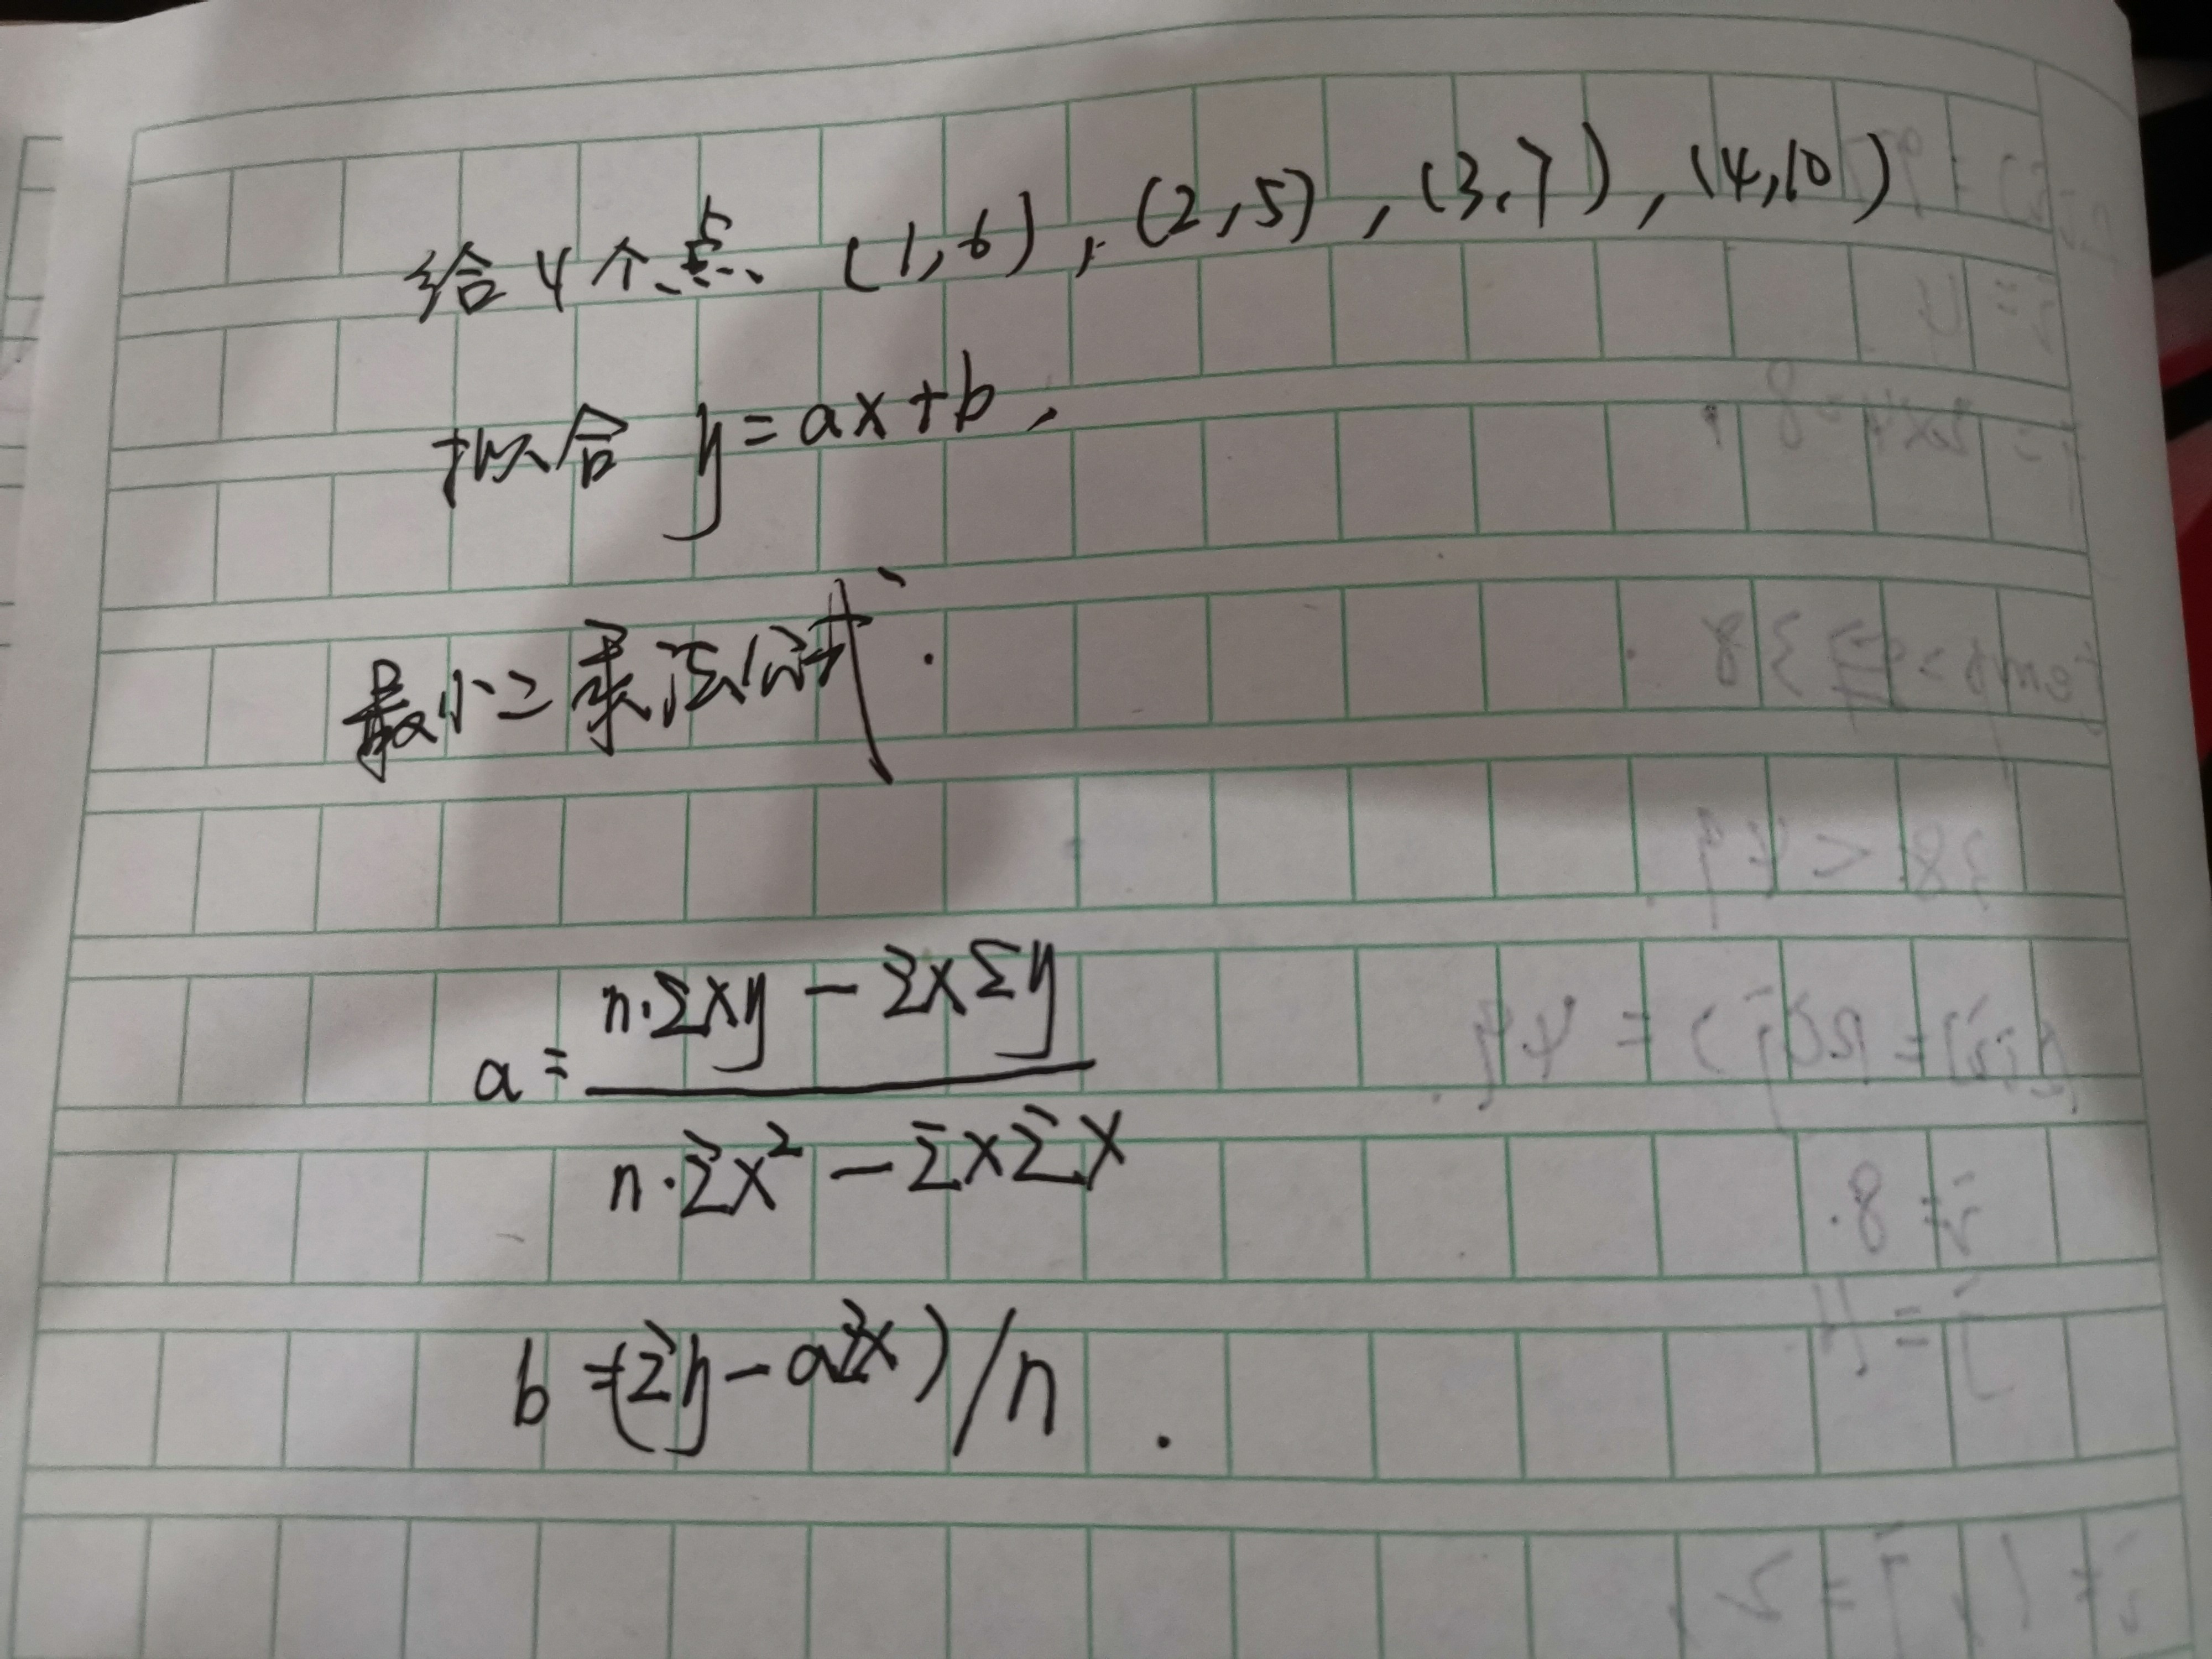 给4个点 (1,6), (2,5), (3,7), (4,10)
拟合 y=ax+b,
最小二乘法公式.
a = (n·Σxy − ΣxΣy) / (n·Σx² − ΣxΣx)
b =(Σy−aΣx)/n .